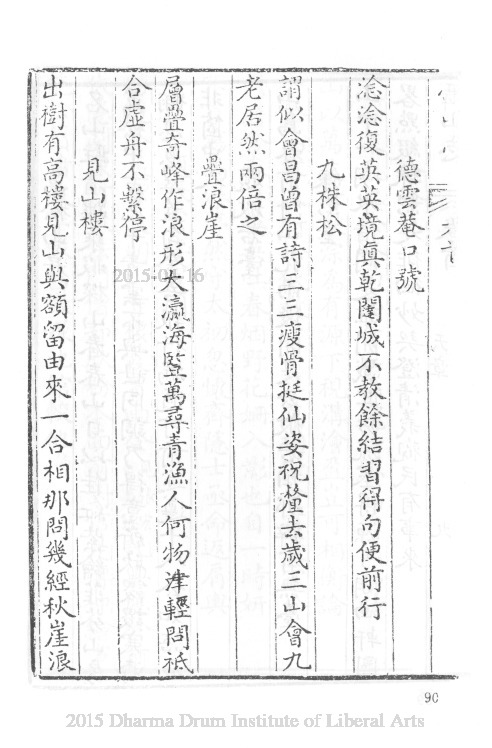 德雲菴口號
淰淰復英英境眞乾闥城不教餘結習得句便前行
九株松
謂似會昌曾有詩三三瘦骨挺仙姿祝釐去歲三山會九
老居然兩倍之
疊浪崖
層疊奇峰作浪形大瀛海竪萬尋青漁人何物津輕問祗
合虛舟不繫停
見山樓
出樹有高樓見山與額留由來一合相那問幾經秋崖浪
2015-04-16
90
2015 Dharma Drum Institute of Liberal Arts